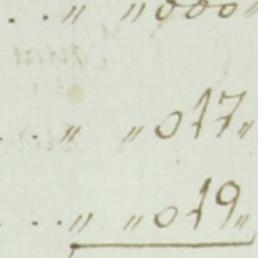 . . „ „000„
. . „ „017„
. . . „ „019„